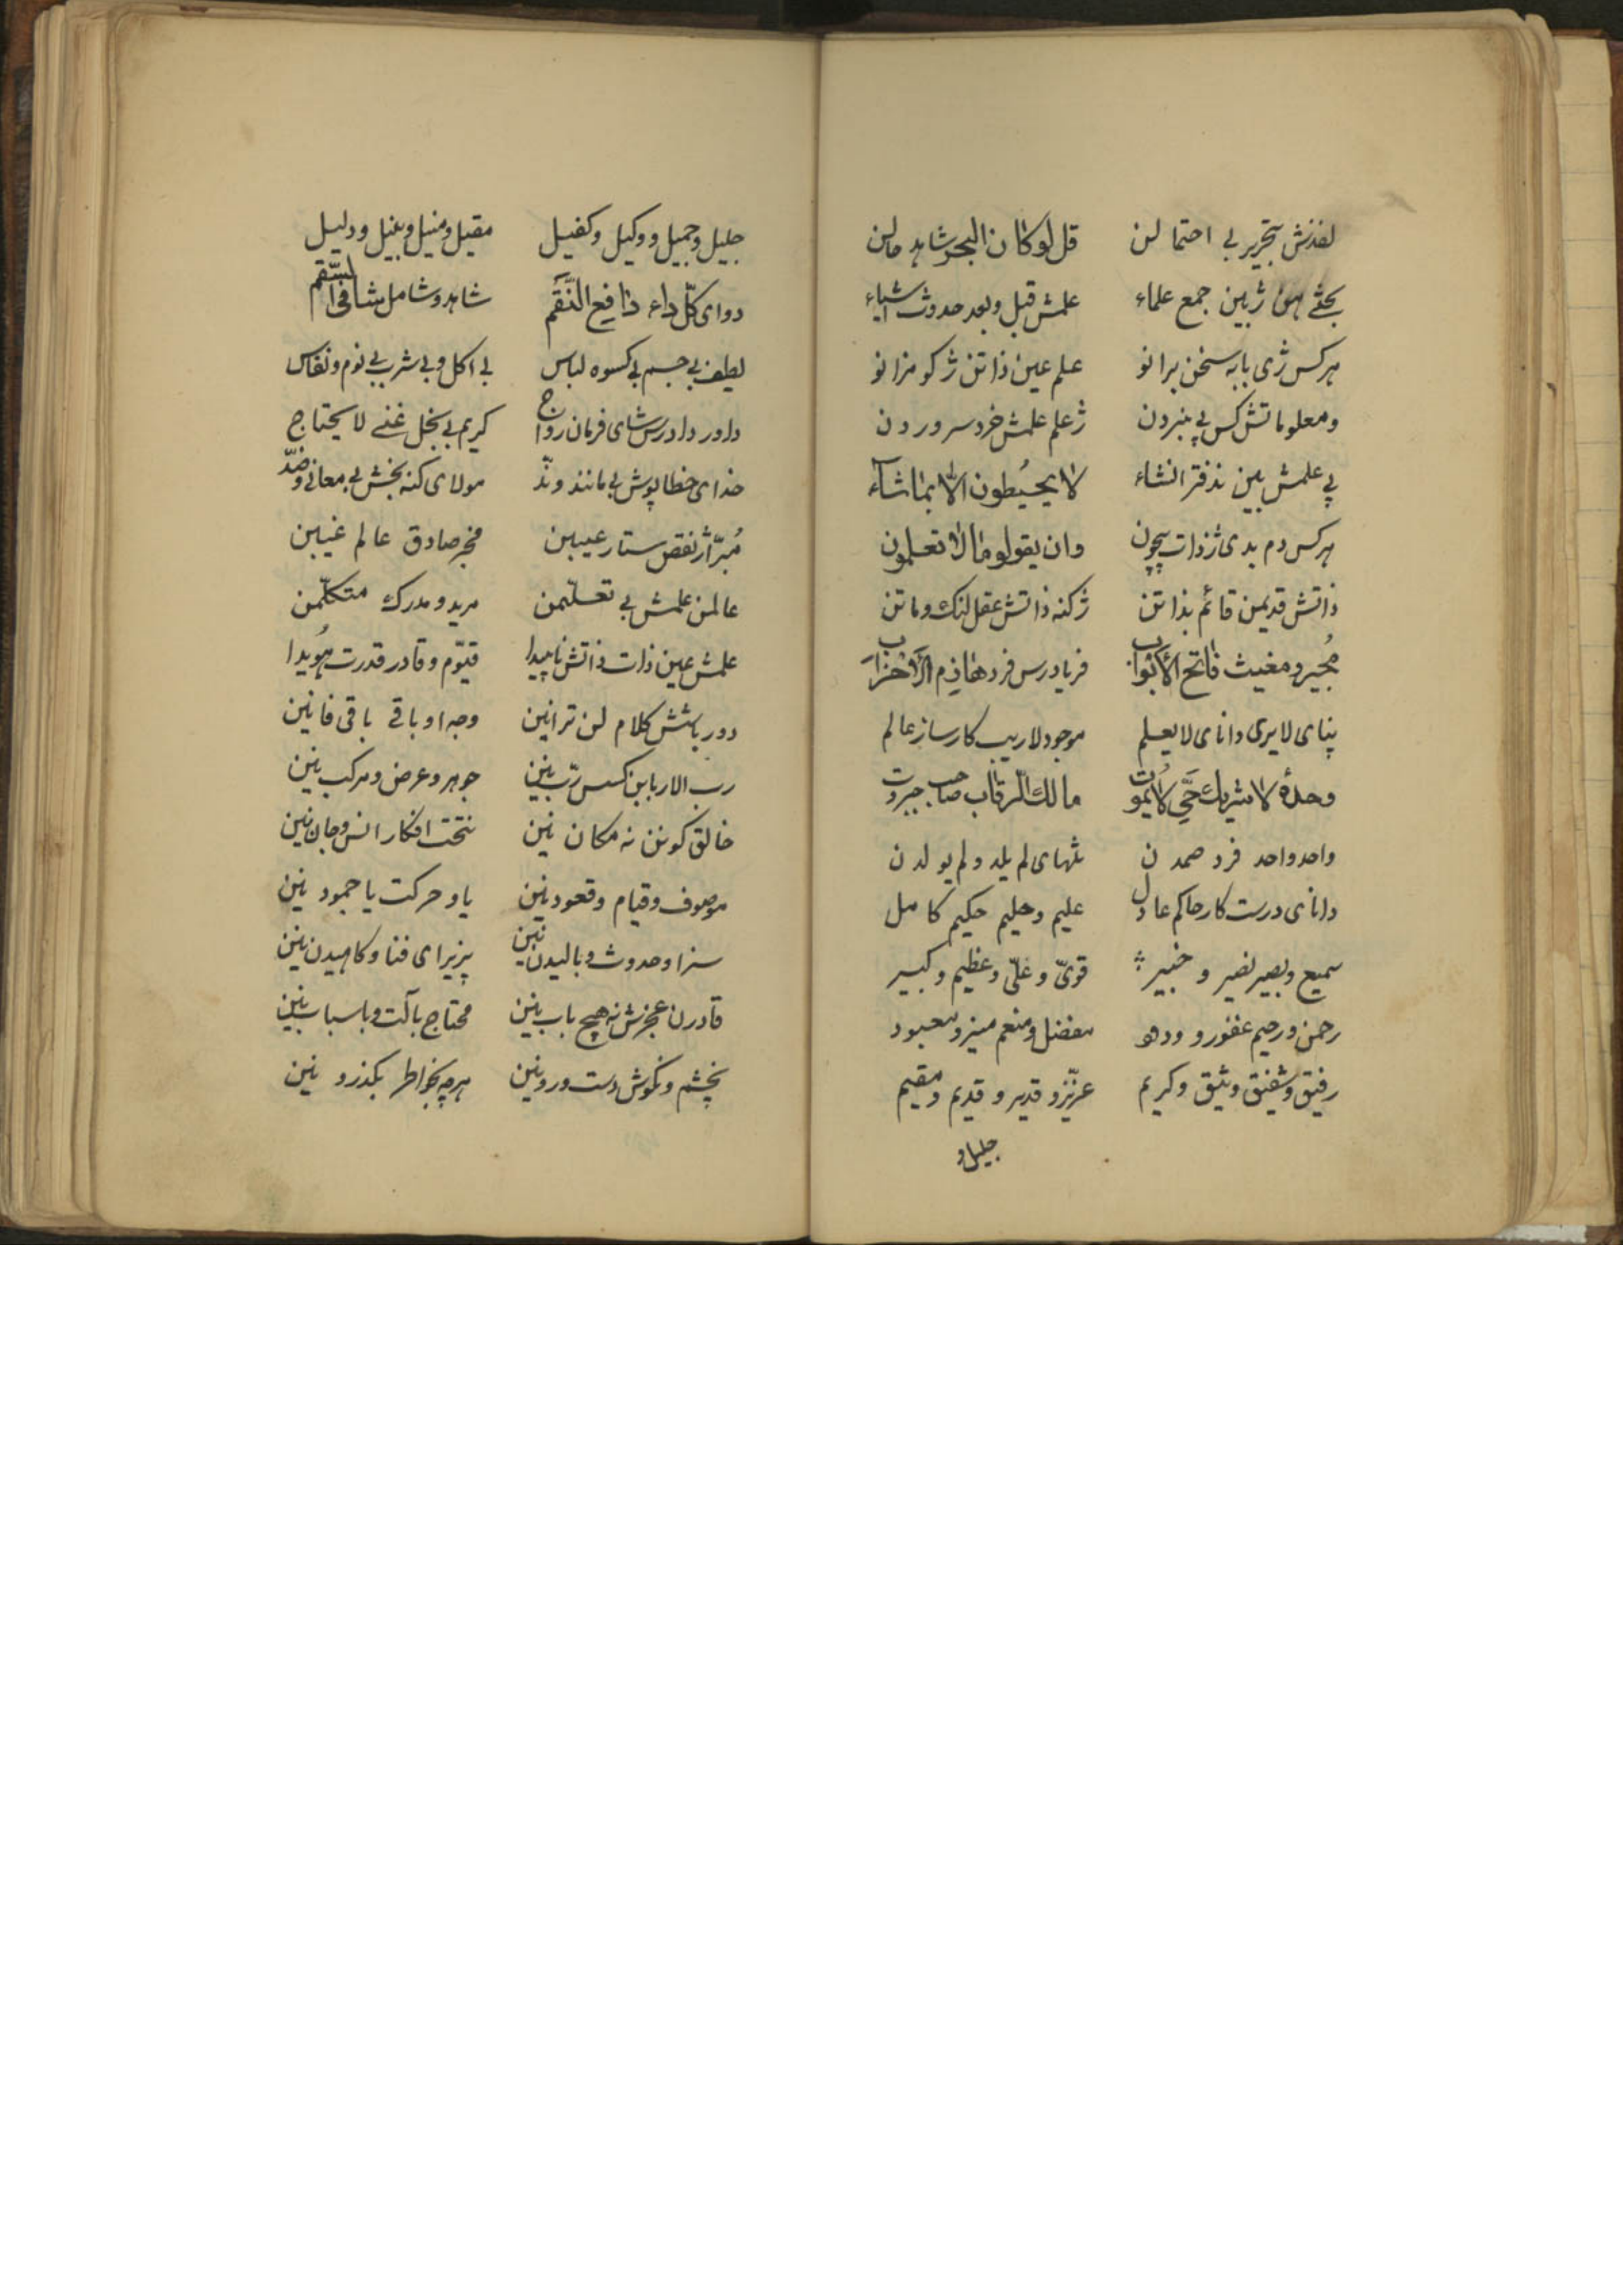 لفذنش بتحریر بی احتمالن قل لو کان البحر شاهد حالن
بحثی هن ژبین جمع علماء علمش قبل و بعد حدوث اشیاء
هرکس ژی بابه سخن برانو علم عین ذاتن ژکو مزانو
و معلوماتش کس پی نبردن ژعلم علمش خرد سروردن
پی علمش بین ندفتر انشاء لا یحیطون الا بما شاء
هرکس دم بدی ژذات بیچون و ان یقولو ما لا تعلمون
ذاتش قدیمن قائم بذاتن ژکنه ذاتش عقل لنک و ماتن
مُجیر و مغیث فاتح الأبواب فریادرس فرد هاذم الأحزاب
بینای لایری دانای لایعلم موجود لاریب کارساز عالم
وحدهٔ لا شریك حَيّ لا یموُت مالك الرقاب صاحب جبروت
واحد واحد فرد صمدن تنهای لم یلد و لم یولدن
دانای درست کار حاکم عادل علیم و حلیم حکیم کامل
سمیع و بصیر نصیر و خبیر قویّ و علیّ و عظیم و کبیر
رحمن و رحیم غفور و ودود مفضل و منعم منیر و معبود
رفیق و شفیق وثیق و کریم عزیّز و قدیر و قدیم و مقیم
جلیل و
جلیل و جمیل و وکیل و کفیل مقیل و منیل و نبیل و دلیل
دوای کلّ داء دافع النّقَم شاهد و شامل شافی السّقم
لطیف بی جسم بی کسوه لباس بی اکل و بی شرب بی نوم و نعاس
داور دادرس شای فرمان رواج کریم بی بخل غنی لا یحتاج
خدای خطاپوش بی مانند و ندّ مولای کنه بخش بی معانی و ضدّ
مُبرّا ژنقص ستار عیبین مخبر صادق عالم غیبین
عالمن علمش بی تعلّیمن مرید و مدرك متکلّمن
علمش عین ذات ذاتش ناپیدا قیوّم و قادر قدرت هُویدا
دور باشش کلام لن ترانین وجه او باقی باقی فانین
رب الاربابن کس ربّ نین جوهر و عرض و مرکب نین
خالق کونن نه مکان نین نتحت افکار انس و جان نین
موصوف و قیام و قعود نین یا و حرکت یا جمود نین
سزا و حدوث و بالیدن نین پزیرای فنا و کاهیدن نین
قادرن عجزش نه هیچ باب نین محتاج بآلت و باسباب نین
بچشم و نکوش دست و رو نین هرچه بخواطر بکذرو نین